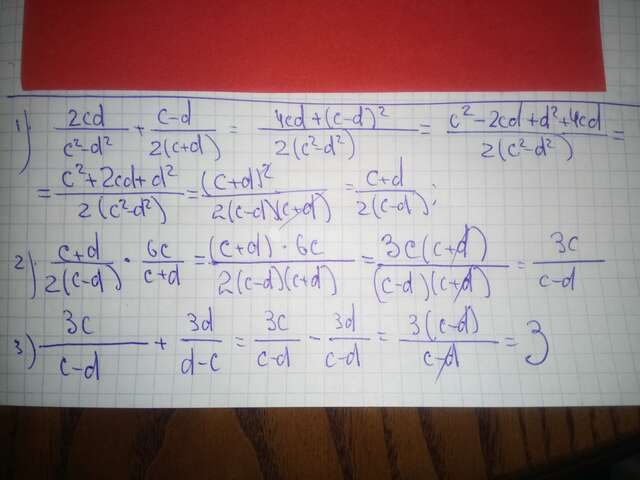 1) 2cd/(c²-d²) + (c-d)/(2(c+d)) = (4cd+(c-d)²)/(2(c²-d²)) = (c²-2cd+d²+4cd)/(2(c²-d²)) =
= (c²+2cd+d²)/(2(c²-d²)) = (c+d)²/(2(c-d)(c+d)) = (c+d)/(2(c-d));
2) (c+d)/(2(c-d)) · 6c/(c+d) = ((c+d)·6c)/(2(c-d)(c+d)) = (3c(c+d))/((c-d)(c+d)) = 3c/(c-d)
3) 3c/(c-d) + 3d/(d-c) = 3c/(c-d) - 3d/(c-d) = (3(c-d))/(c-d) = 3